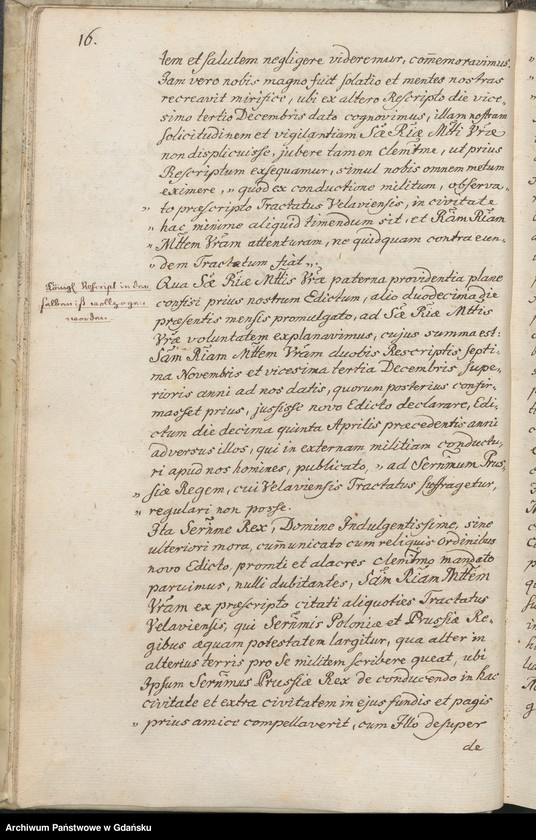 16.
tem et salutem negligere videremur, com̄emoravimus.
Jam vero nobis magno fuit solatio et mentes nostras
recreavit mirifice, ubi ex altero Rescripto die vice,
simo tertio Decembris dato cognovimus, illam nostram
solicitudinem et vigilantiam Sc̃æ R̃iæ Mtti Vr̃æ
non displicuisse, jubere tamen Clem̃tme, ut prius
Rescriptum exsequamur, simul nobis omnem metum
eximere, „ quod ex conductione militum, observa„
„ to præscripto Tractatus Velaviensis, in civitate
„ hac, minime aliquid timendum sit, et R̃am R̃iam
„ Mttem Vr̃am attenturam, ne quidquam contra eun„
„ dem Tractatum fiat „.
Qua Sc̃æ R̃iæ Mttis Vr̃æ paterna providentia plane
Königl. Rescript in den
confisi prius nostrum Edictum, alio duodecima die
selben ist vollzogen
præsentis mensis promulgato, ad Sc̃æ R̃iæ Mttis
worden.
Vr̃æ voluntatem explanavimus, cujus summa est:
Sãm R̃iam Mttem Vr̃am duobis Rescriptis septi,
ma Novembris et vicesima tertia Decembris supe,
rioris anni ad nos datis, quorum posterius confir,
masset prius, jussisse novo Edicto declarare, Edi,
ctum die decima quinta Aprilis præcedentis anni
adversus illos, qui in externam militiam conductu,
ri apud nos homines, publicato, „ ad Sern̄mum Prus,
„ siæ Regem, cui Velaviensis Tractatus suffragetur,
„ regulari non posse.
Ita Sern̄me Rex, Domine Indulgentissime, sine
ulteriori mora, com̄unicato cum reliquis Ordinibus
novo Edicto, promti et alacres Clem̃tmo mandato
paruimus, nulli dubitantes, Sãm R̃iam Mttem
Vr̃am ex præscripto citati aliquoties Tractatus
Velaviensis, qui Sern̄mis Poloniæ et Prussiæ Re,
gibus æquam potestatem largitur, qua alter in
alterius terris pro se militem scribere queat, ubi
Ipsum Sern̄mus Prussiæ Rex de conducendo in hac
civitate et extra civitatem in ejus fundis et pagis
„ prius amice compellaverit, cum Illo desuper
de
Archiwum Państwowe w Gdańsku